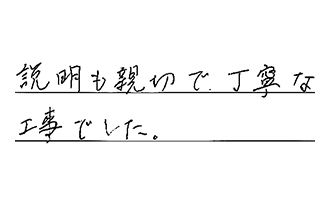 説明も親切で、丁寧な
工事でした。